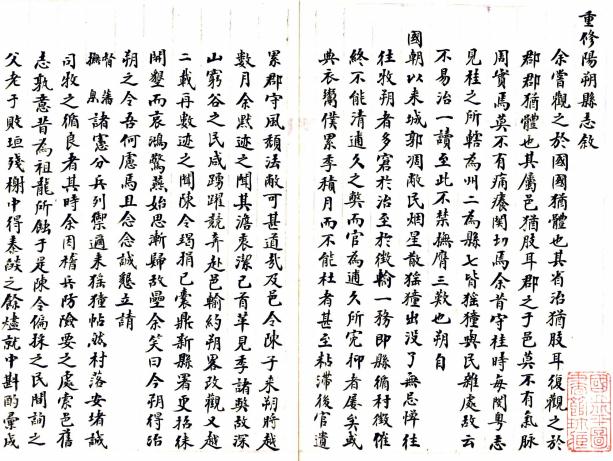 重修陽朔縣志敘
余嘗觀之於國國猶體也其省治猶股耳復觀之於
郡郡猶體也其屬邑猶股耳郡之于邑莫不有氣脉
周實焉莫不有痛癢関切焉余首守桂時每閱粤志
見桂之所轄為州二為縣七皆猺獞與民雜處故云
不易治一讀至此不禁撫膺三歎也朔自
國朝以来城郭凋敝民烟星散猺獞出没了無忌憚往
往牧朔者多窘於治至於徵輸一務即縣循村徵催
終不能清逋久之獘而官為逋久所寃抑者屡矣或
典衣鬻僕累季積月而不能杜者甚至粘滯後官遺
累郡守風頹法敝可甚道㢤及邑令陳子来朔時越
数月余默迹之聞其澹衷潔己首革見季諸獘故深
山窮谷之民咸踴躍競弃赴邑輸約朔畧改觀又越
二載再数迹之聞陳令竭捐已囊鼎新縣署更招徠
開墾而哀鴻驚燕始思漸歸故壘余笑曰今朔得治
朔之令吾何慮焉且念念誠懇立請
督藩
撫臬諸憲分兵列禦過来猺獞帖然村落安堵誠
司牧之循良者其時余因稽兵防險要之處索邑舊
志孰意昔為祖龍所蝕于是陳令徧採之民間詢之
父老于敗垣殘榭中得秦燄之餘燼就中斟酌彙成